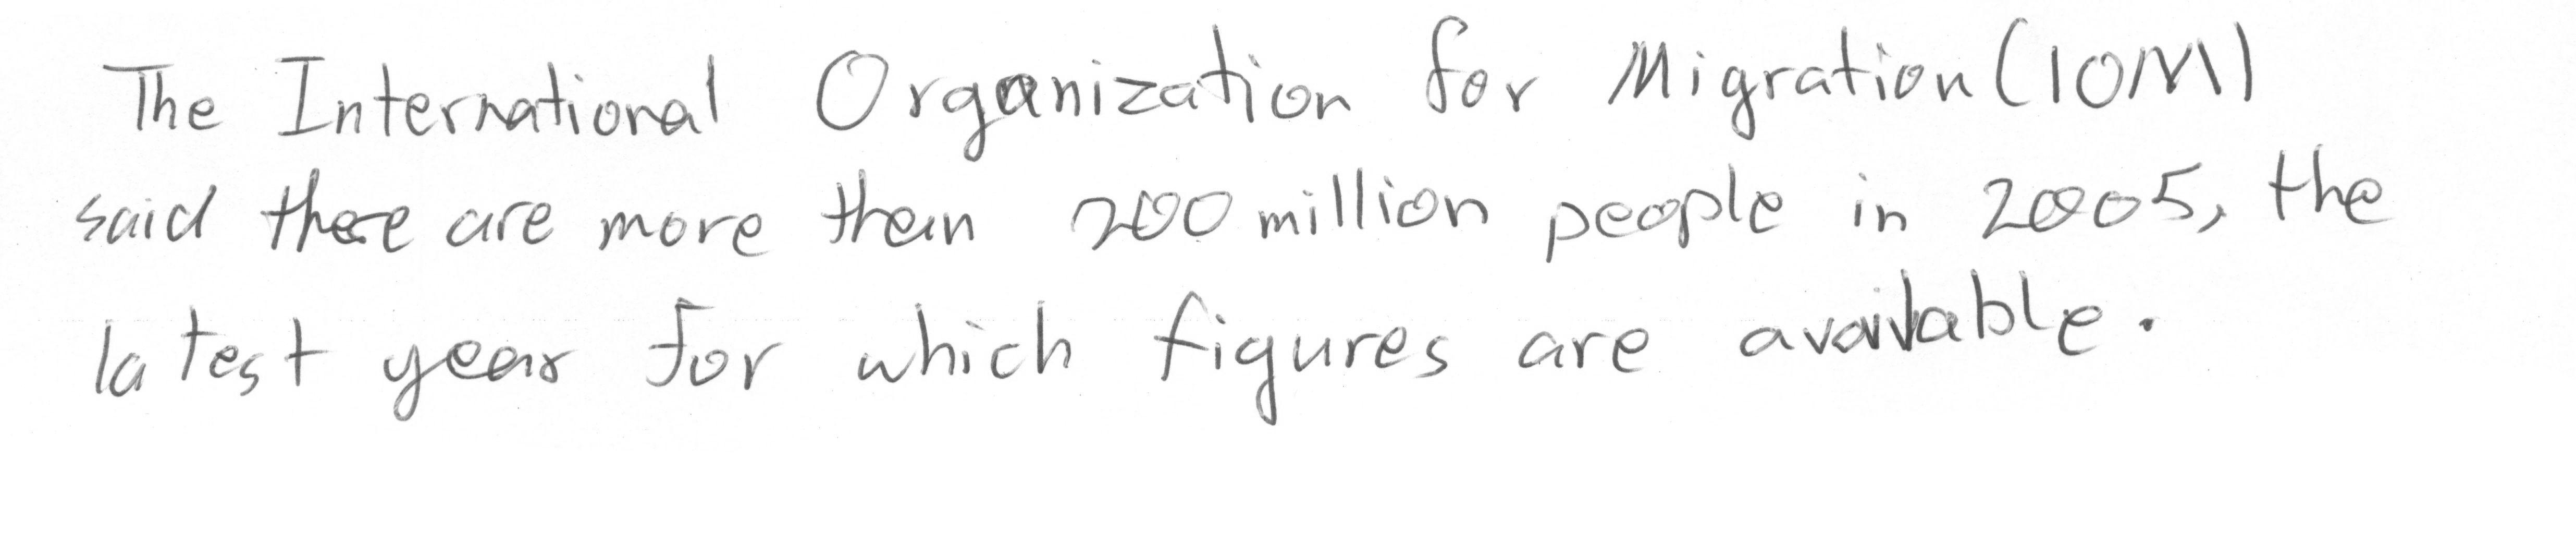 The International Organization for Migration (IOM)
said there are more than 200 million people in 2005, the
latest year for which figures are available.